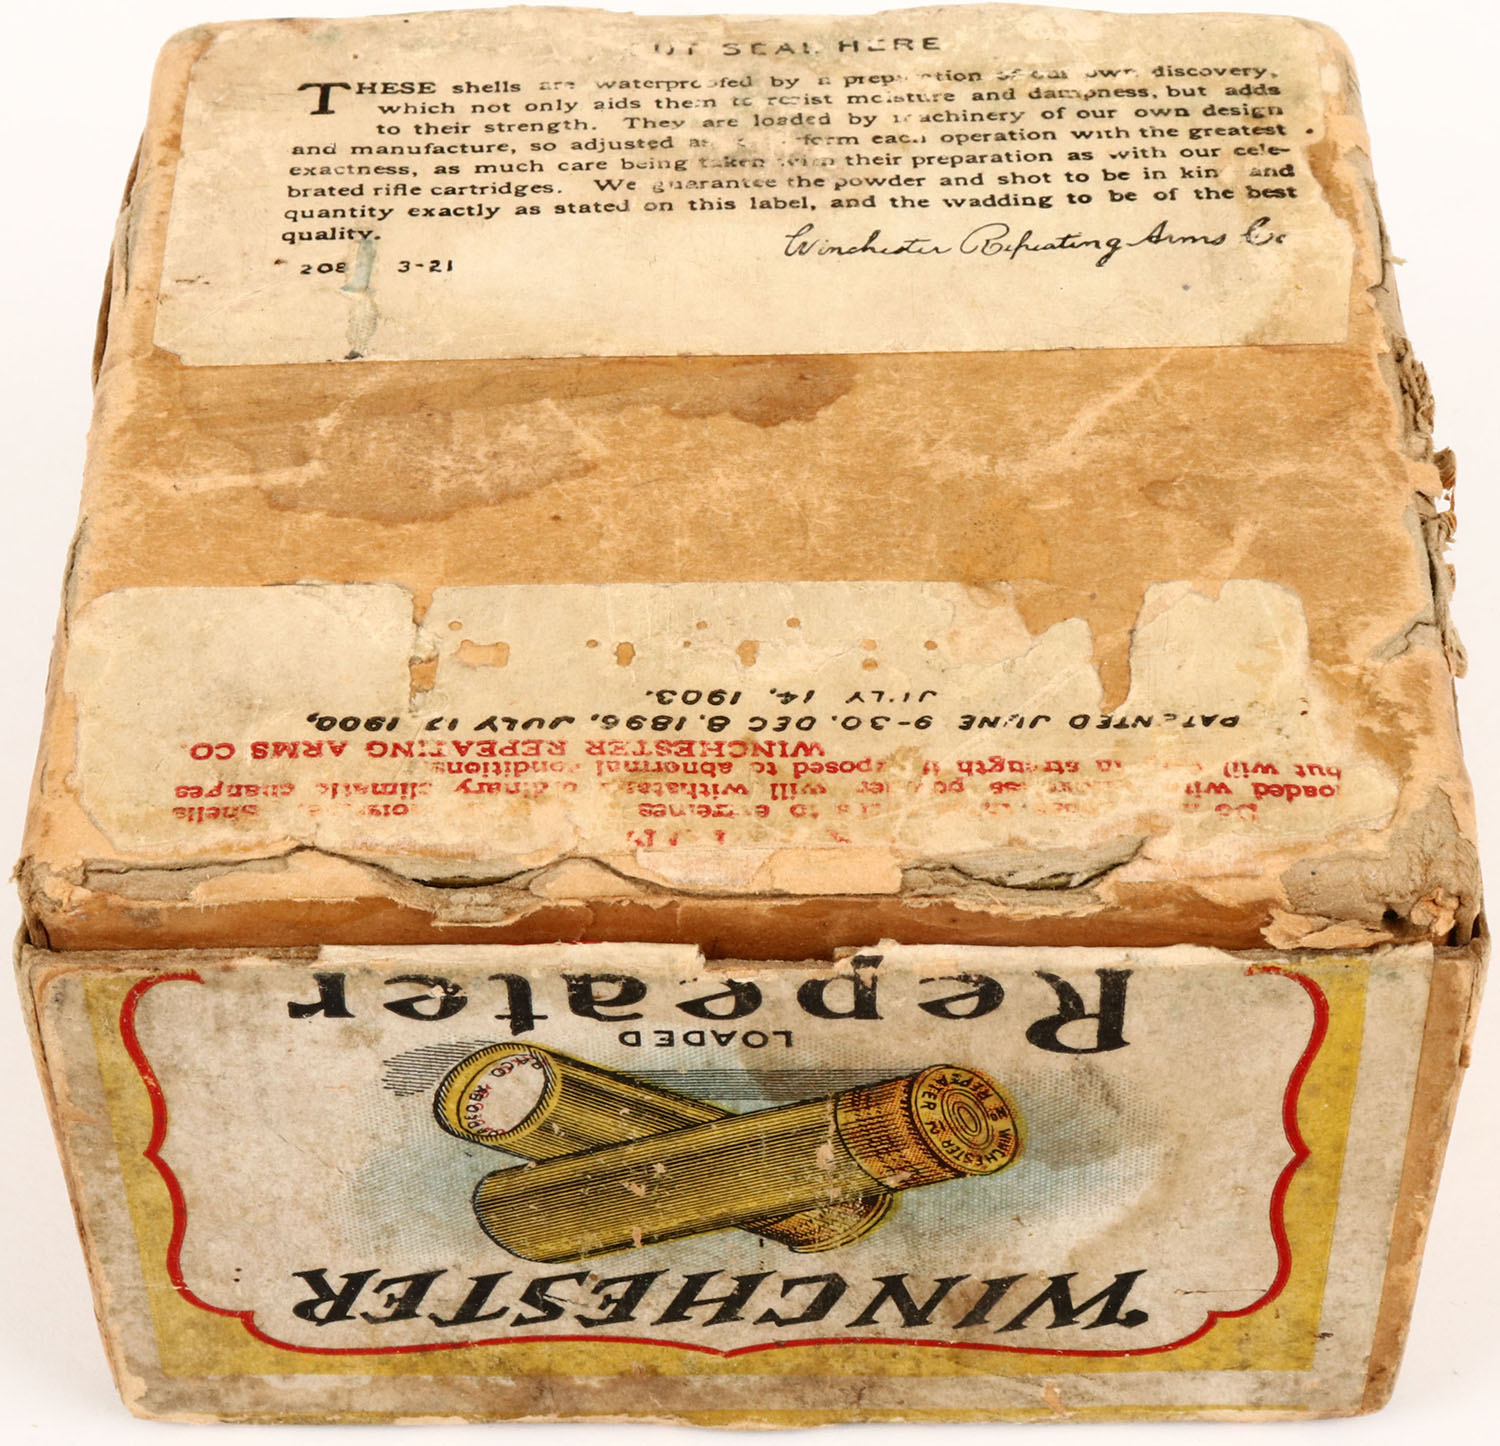 CUT SEAL HERE
THESE shells are waterproofed by a preparation of our own discovery,
which not only aids them to resist moisture and dampness, but adds
to their strength. They are loaded by machinery of our own design
and manufacture, so adjusted as form each operation with the greatest
exactness, as much care being taken with their preparation as with our cele-
brated rifle cartridges. We guarantee the powder and shot to be in kin and
quantity exactly as stated on this label, and the wadding to be of the best
quality.
Winchester Repeating Arms Co
208 3-21
to extremes shells
loaded with powder will withstand ordinary climatic changes
but will in strength if exposed to abnormal conditions.
WINCHESTER REPEATING ARMS CO.
PATENTED JUNE 9-30. DEC 8. 1896. JULY 17 1900,
JULY 14, 1903.
WINCHESTER
WINCHESTER REPEATER
LOADED
Repeater